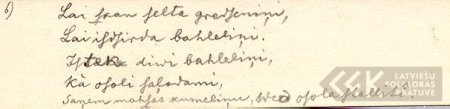 6) Lai skan selta gredseniņi,
Lai isdsirda bahleliņi.
Istek diwi bahleliņi,
Kà osoli salodami,
Saņem mahsas kumeliņu, wed osola stallitî.
LATVIEŠU
FOLKLORAS
KRĀTUVE